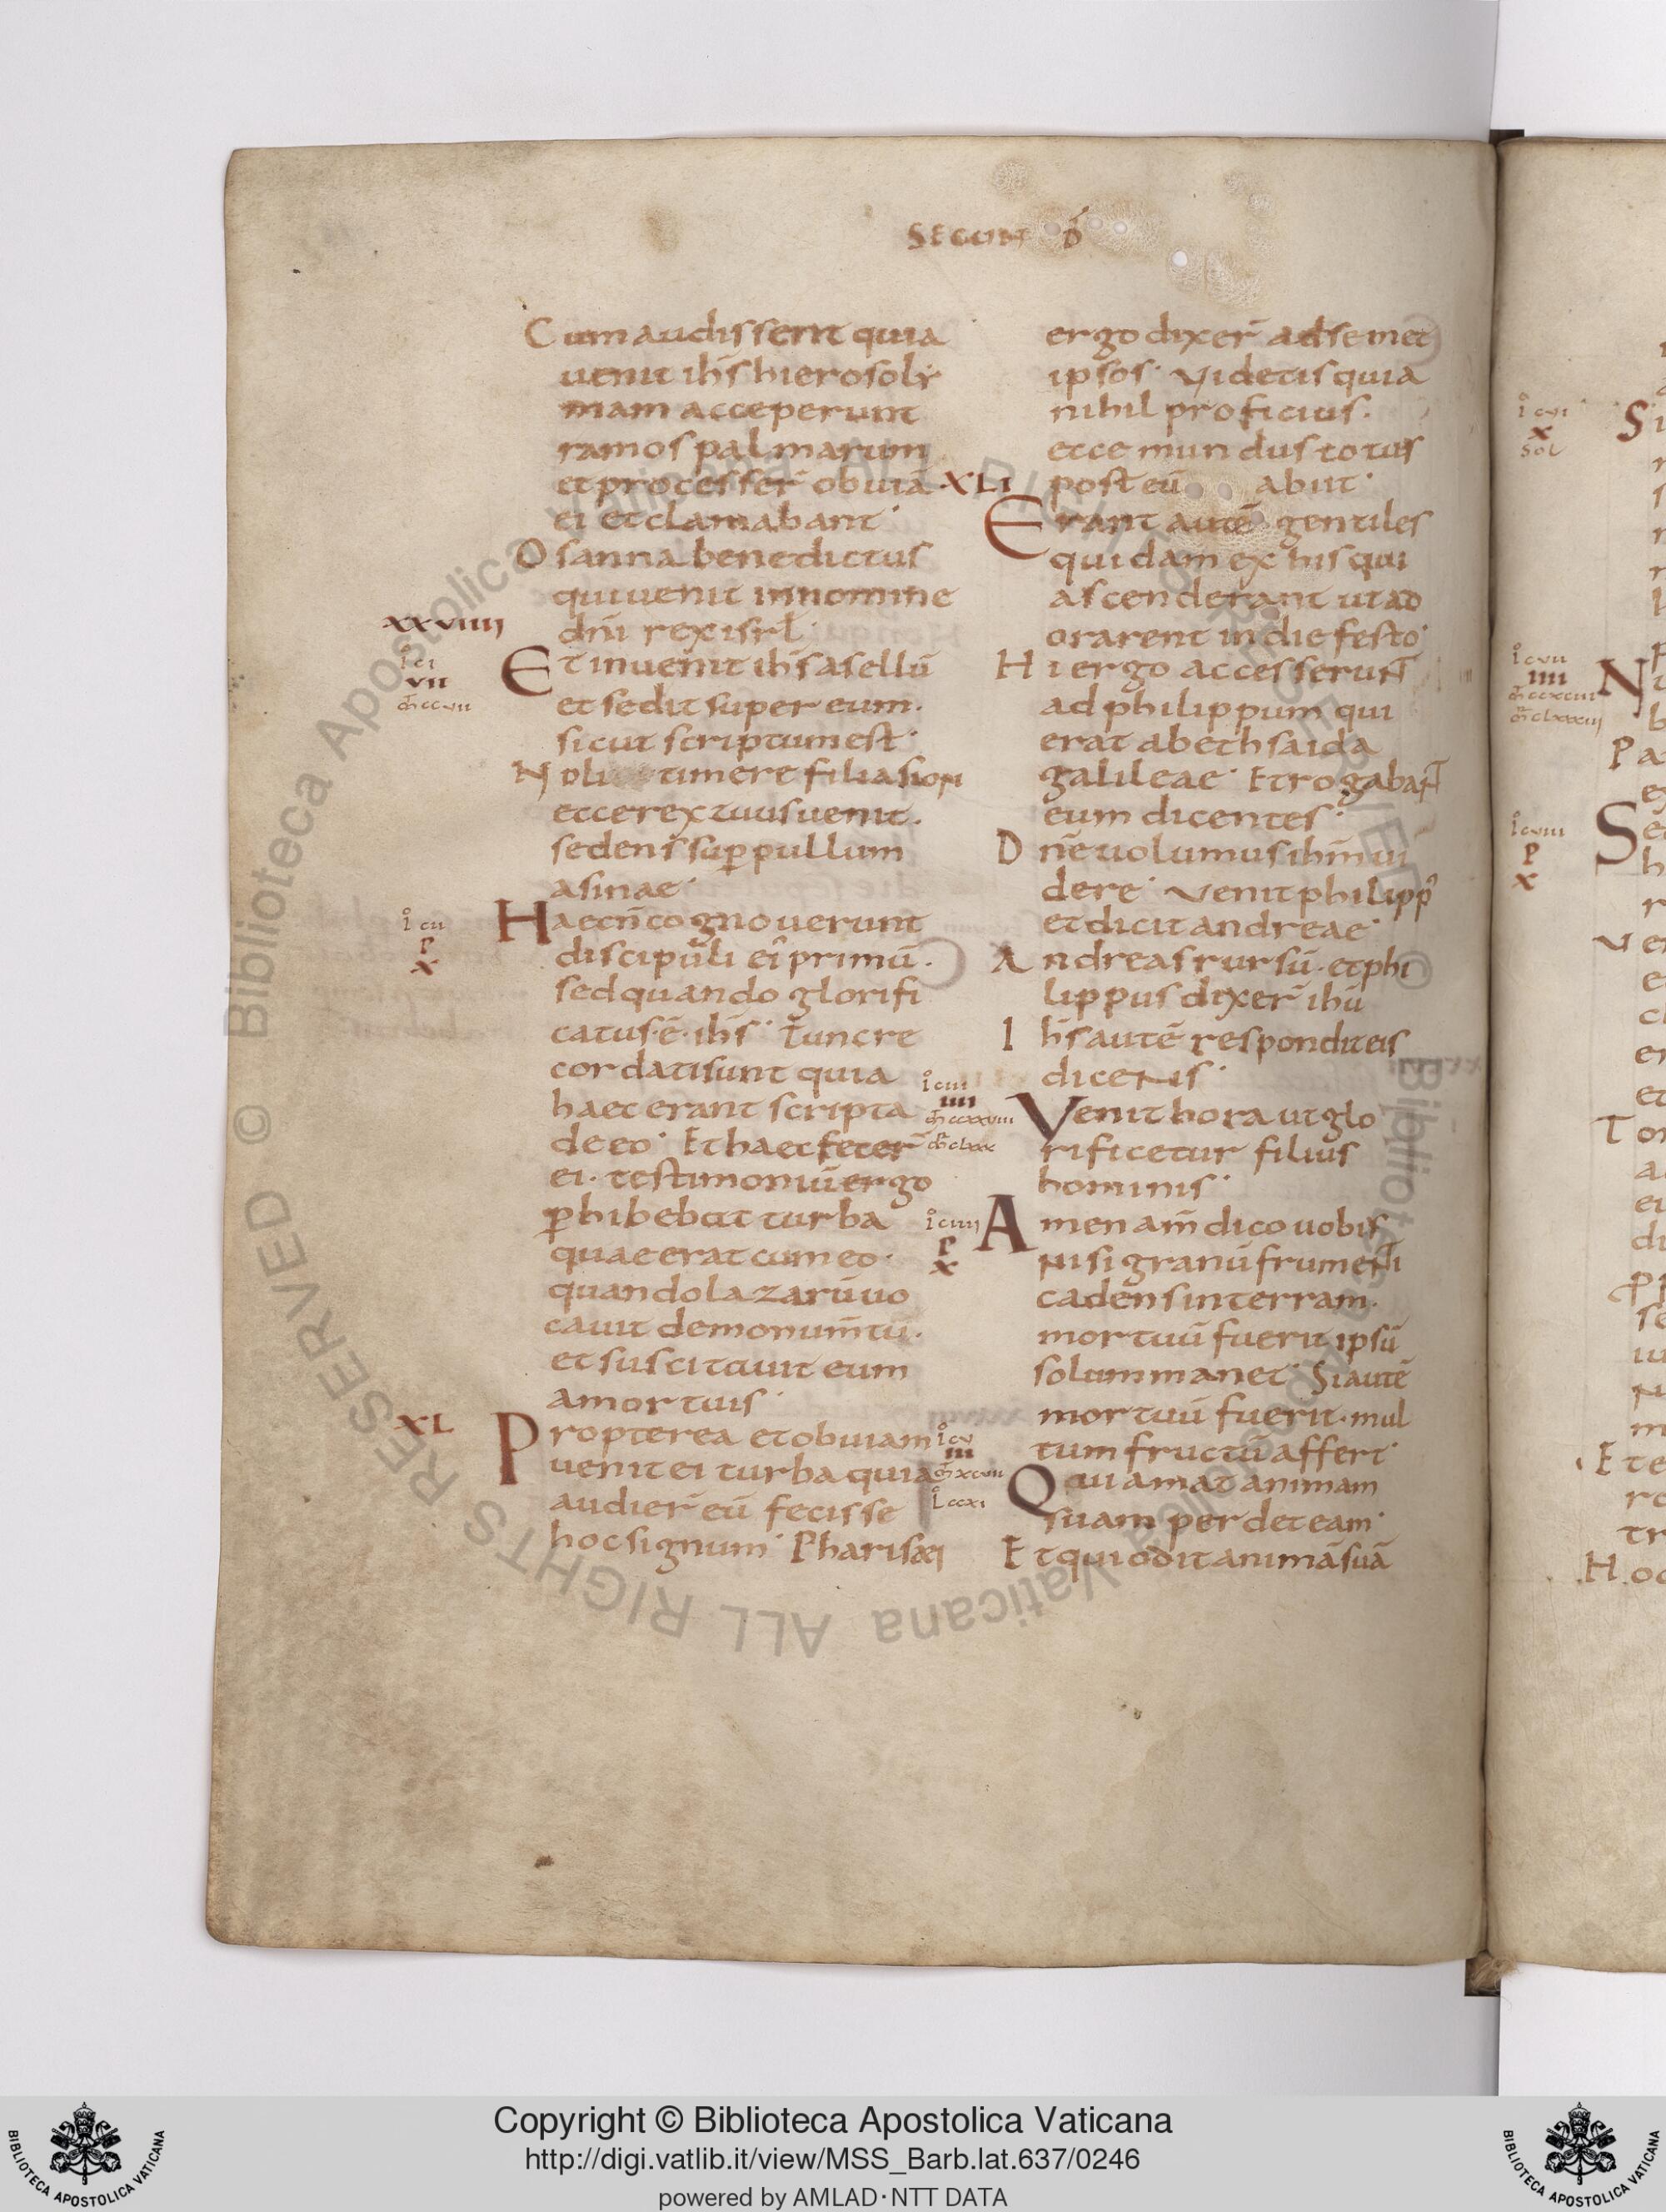 SECUN D
Cum audissent quia
uenit ihs hierosoly
mam acceperunt
ramos palmarum
et processer̄ obuiā
ei et clamabant·
Osanna benedictus
qui uenit in nomine
dn̄i rex isrl̄·
XXVIIII
Et inuenit ihs̄ asellū
et sedit super eum·
sicut scriptum est·
Noli timere filia sion
ecce rex tuus uenit·
sedens sup̄ pullum
asinae·
Haec n̄ cognouerunt
discipuli ei' primū·
sed quando glorifi
catus·ē·ihs̄· Tunc re
cordati sunt quia
haec erant scripta
de eo· Et haec fecer̄
ei· testimoniū ergo
phibebat turba
quae erat cum eo·
quando lazarū uo
cauit de monum̄tū·
et suscitauit eum
a mortuis·
XL
Propterea et obuiam
uenit ei turba quia
audier̄ eū fecisse
hoc signum· Pharisæi
ergo dixer̄ ad semet
ipsos· Videtis quia
nihil proficius·
ecce mundus totus
post eū abiit·
XLI
Erant autē gentiles
quidam ex his qui
ascenderant ut ad
orarent in die festo·
Hi ergo accesserunt
ad philippum qui
erat a bethsaida
galileae· Et rogabant
eum dicentes·
Dn̄e uolumus ihm̄ ui
dere· Venit philipp'
et dicit andreae·
Andreas rursū· et phi
lippus dixer̄ ihū
Ihs̄ autē respondit eis
dicens·
Venit hora ut glo
rificetur filius
hominis·
Amen am̄ dico uobis
nisi granū frumenti
cadens in terram·
mortuū fuerit ipsū
solum manet· Si autē
mortuū fuerit· mul
tum fructū affert·
Qui amat animam
suam perdet eam·
Et qui odit animā suā
Copyright © Biblioteca Apostolica Vaticana
http://digi.vatlib.it/view/MSS_Barb.lat.637/0246
powered by AMLAD·NTT DATA